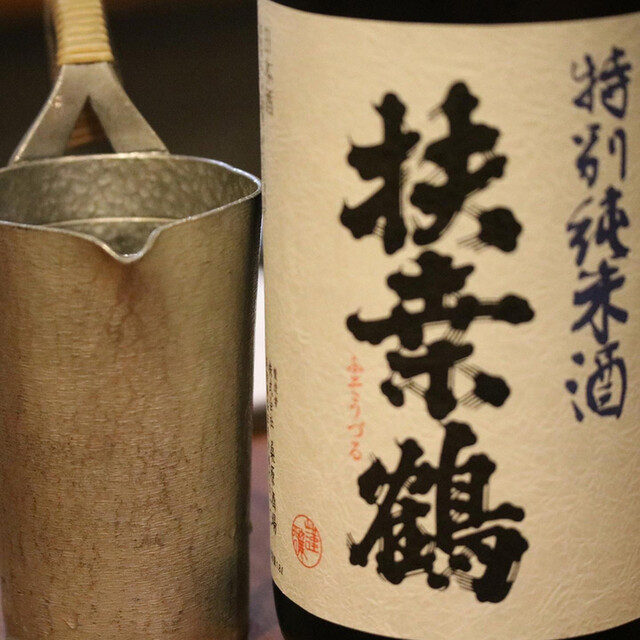 特別純米酒
扶桒鶴
ふそうづる